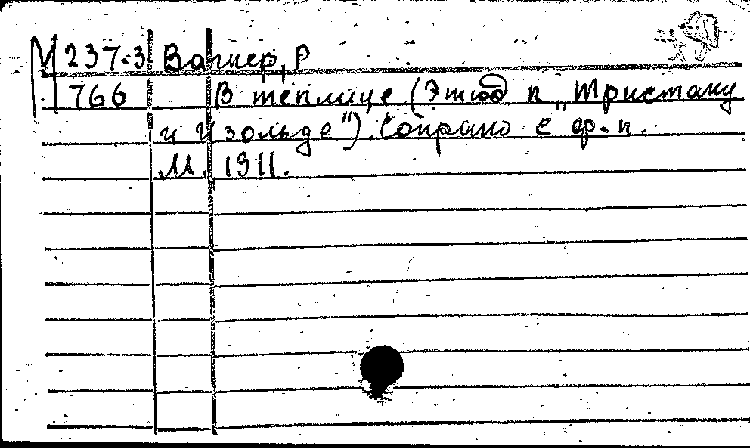 М 237-3 Вагнер, Р
766 В теплице (Этюд к „Тристану
и Изольде"). Сопрано с ф.-п.
М. 1911.